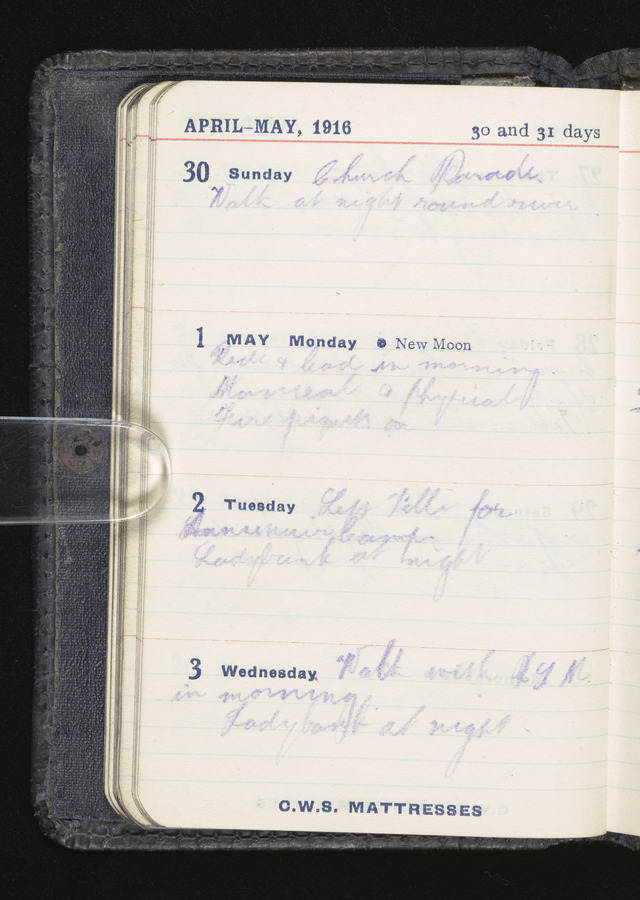 APRIL-MAY, 1916 30 and 31 days
30 Sunday Church Parade.
Walk at night round river
1 MAY Monday ● New Moon
Rode & lead in morning.
& Physical
Fire piquet
2 Tuesday Left Tilli for
camp.
Ladybank at night
3 Wednesday Walk with
in morning
Ladybank at night.
C.W.S. MATTRESSES